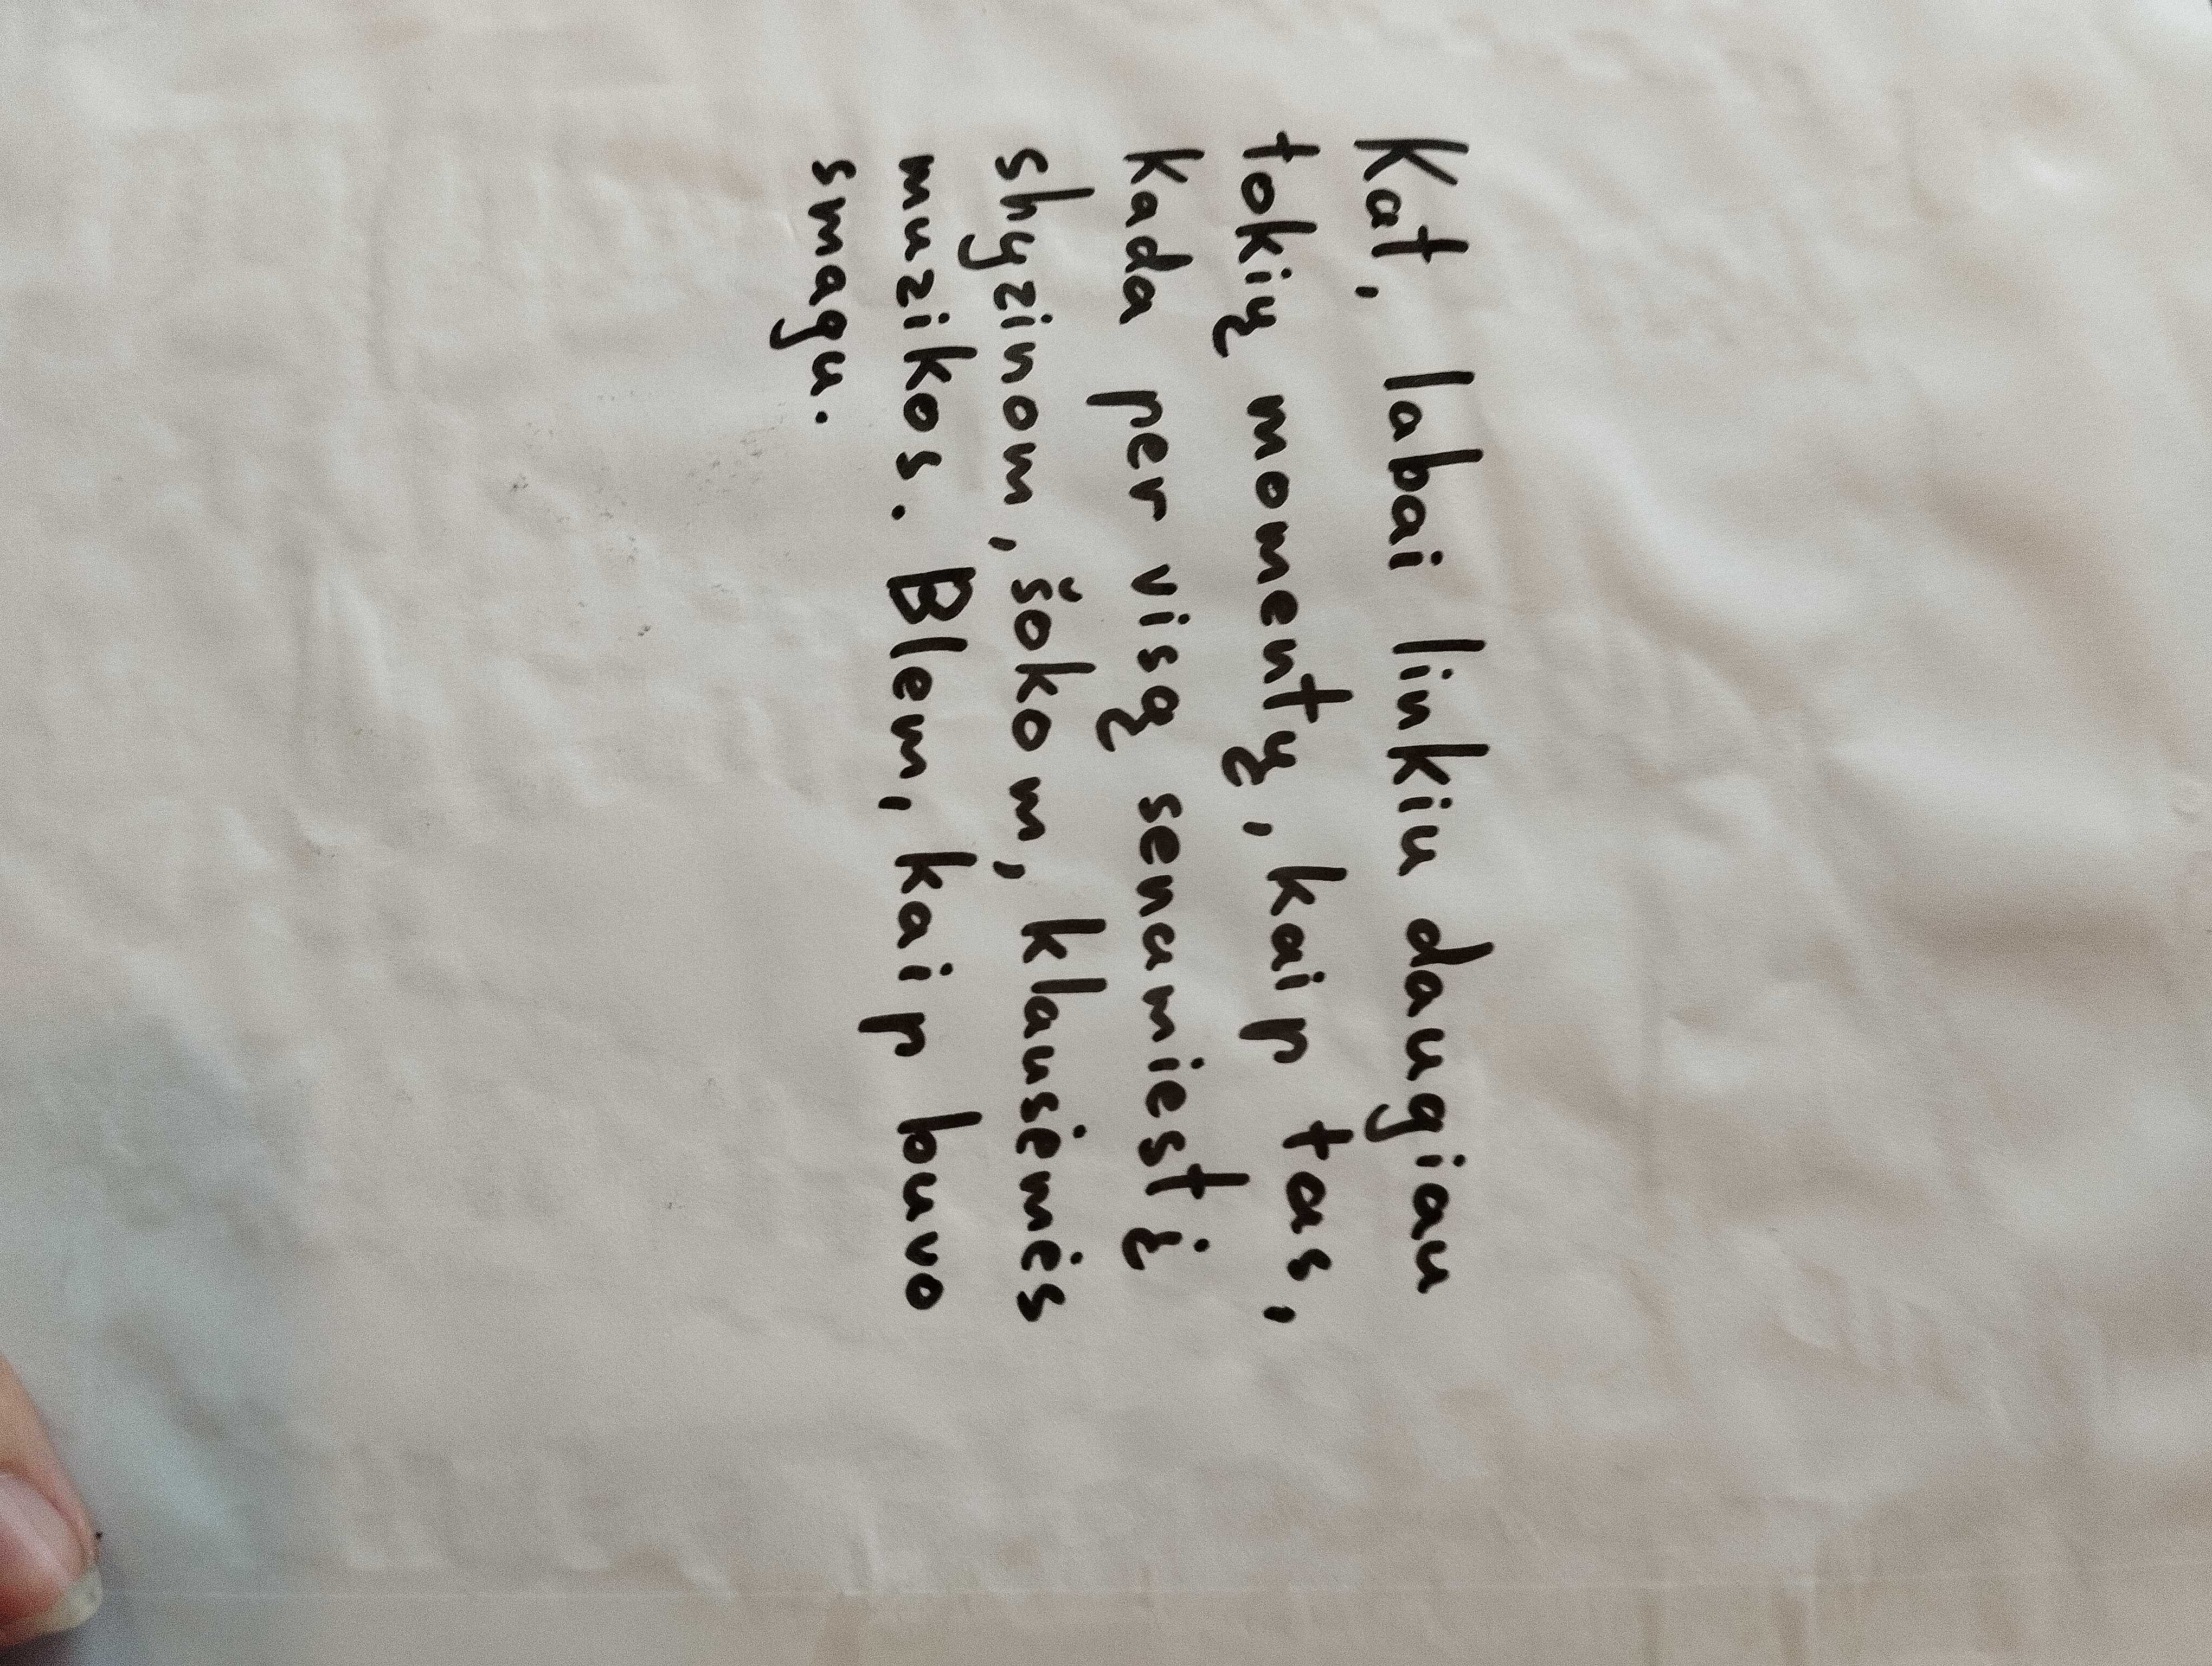 Kat, labai linkiu daugiau
tokių momentų, kaip tas,
kada per visą senamiestį
shyzinom, šokom, klausėmės
muzikos. Blem, kaip buvo
smagu.